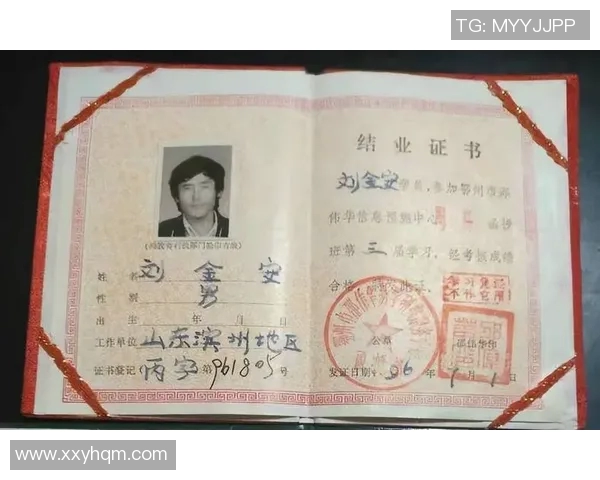 TG: MYYJJPP
(须教育行政部门验印有效)
姓名 刘金安
性别 男
出生 年 月 日
工作单位 山东滨州地区
证书登记 丙字第961805号
结业证书
刘金安学员,参加鄂州市邵
伟华信息预测中心 函授
班第三届学习,经考核成绩
合格
学习凭证
不作它用
公章
邵伟华华
发证日期: 96年 月1日
www.xxyhqm.com